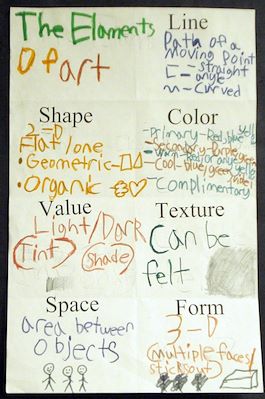 The Elaments
Of art
Line
Path of a
Moving Point
straight
angle
curved
Shape
2-D
Flat/one
Geometric
Organic
Color
Primary-Red blue yellow
Secondary-Purple green
Warm-Red/orange yellow
Cool-blue/green/violet
Complimentary
Value
Light/Dark
Tint
Shade
Texture
Can be
felt
Space
area between
Objects
Form
3-D
(multiple faces/
sticksout)